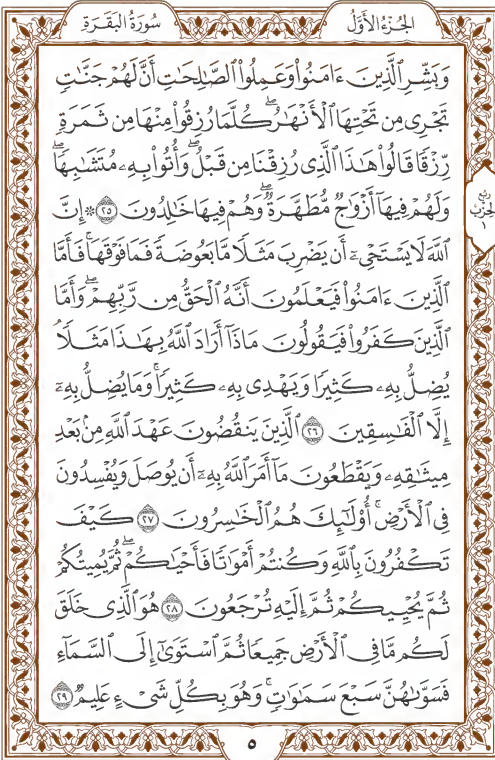 الجزء الأول
سورة البقرة
وَبَشِّرِ ٱلَّذِينَ ءَامَنُوا۟ وَعَمِلُوا۟ ٱلصَّـٰلِحَـٰتِ أَنَّ لَهُمْ جَنَّـٰتٍ
تَجْرِى مِن تَحْتِهَا ٱلْأَنْهَـٰرُ ۖ كُلَّمَا رُزِقُوا۟ مِنْهَا مِن ثَمَرَةٍ
رِّزْقًا قَالُوا۟ هَـٰذَا ٱلَّذِى رُزِقْنَا مِن قَبْلُ ۖ وَأُتُوا۟ بِهِۦ مُتَشَـٰبِهًا ۖ
وَلَهُمْ فِيهَآ أَزْوَٰجٌ مُّطَهَّرَةٌ ۖ وَهُمْ فِيهَا خَـٰلِدُونَ ٢٥ ۞ إِنَّ
ربع
الحزب
١
ٱللَّهَ لَا يَسْتَحْىِۦٓ أَن يَضْرِبَ مَثَلًا مَّا بَعُوضَةً فَمَا فَوْقَهَا ۚ فَأَمَّا
ٱلَّذِينَ ءَامَنُوا۟ فَيَعْلَمُونَ أَنَّهُ ٱلْحَقُّ مِن رَّبِّهِمْ ۖ وَأَمَّا
ٱلَّذِينَ كَفَرُوا۟ فَيَقُولُونَ مَاذَآ أَرَادَ ٱللَّهُ بِهَـٰذَا مَثَلًا ۘ
يُضِلُّ بِهِۦ كَثِيرًا وَيَهْدِى بِهِۦ كَثِيرًا ۚ وَمَا يُضِلُّ بِهِۦٓ
إِلَّا ٱلْفَـٰسِقِينَ ٢٦ ٱلَّذِينَ يَنقُضُونَ عَهْدَ ٱللَّهِ مِنۢ بَعْدِ
مِيثَـٰقِهِۦ وَيَقْطَعُونَ مَآ أَمَرَ ٱللَّهُ بِهِۦٓ أَن يُوصَلَ وَيُفْسِدُونَ
فِى ٱلْأَرْضِ ۚ أُو۟لَـٰٓئِكَ هُمُ ٱلْخَـٰسِرُونَ ٢٧ كَيْفَ
تَكْفُرُونَ بِٱللَّهِ وَكُنتُمْ أَمْوَٰتًا فَأَحْيَـٰكُمْ ۖ ثُمَّ يُمِيتُكُمْ
ثُمَّ يُحْيِيكُمْ ثُمَّ إِلَيْهِ تُرْجَعُونَ ٢٨ هُوَ ٱلَّذِى خَلَقَ
لَكُم مَّا فِى ٱلْأَرْضِ جَمِيعًا ثُمَّ ٱسْتَوَىٰٓ إِلَى ٱلسَّمَآءِ
فَسَوَّىٰهُنَّ سَبْعَ سَمَـٰوَٰتٍ ۚ وَهُوَ بِكُلِّ شَىْءٍ عَلِيمٌ ٢٩
٥